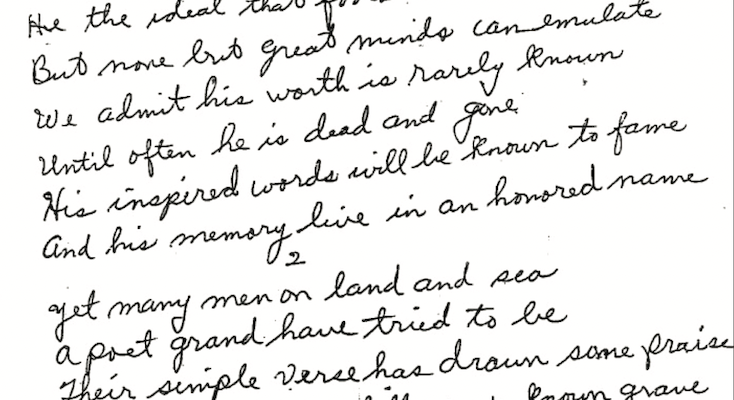 He the ideal that
But none but great minds can emulate
We admit his worth is rarely known
Until often he is dead and gone.
His inspired words will be known to fame
And his memory live in an honored name
2
Yet many men on land and sea
a poet grand have tried to be
Their simple verse has drawn some praise
known grave